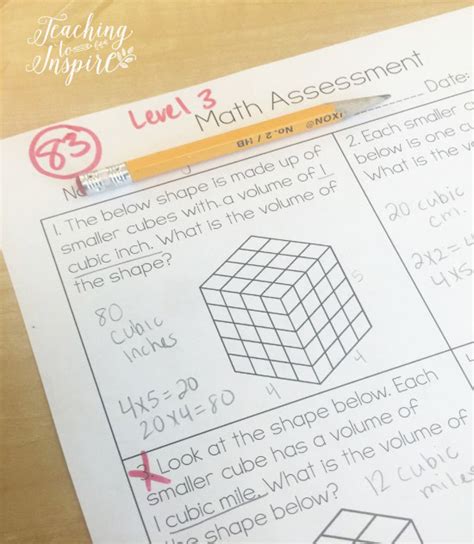 Teaching
to
Inspire
83
Level 3
Math Assessment
IXON® No. 2 / HB
Date:
1. The below shape is made up of
smaller cubes with a volume of 1
cubic inch. What is the volume of
the shape?
80
cubic
inches
4x5=20
20x4=80
5
4
4
2. Each smaller c
below is one cu
What is the v
20 cubic
cm.
2x2=
4x5
3. Look at the shape below. Each
smaller cube has a volume of
1 cubic mile. What is the volume of
the shape below?
12 cubic
miles